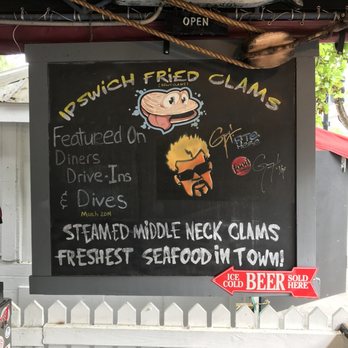 OPEN
IPSWICH FRIED CLAMS
Featured On
Diners
Drive-Ins
& Dives
March 2014
STEAMED MIDDLE NECK CLAMS
FRESHEST SEAFOOD IN TOWN!
ICE COLD BEER SOLD HERE